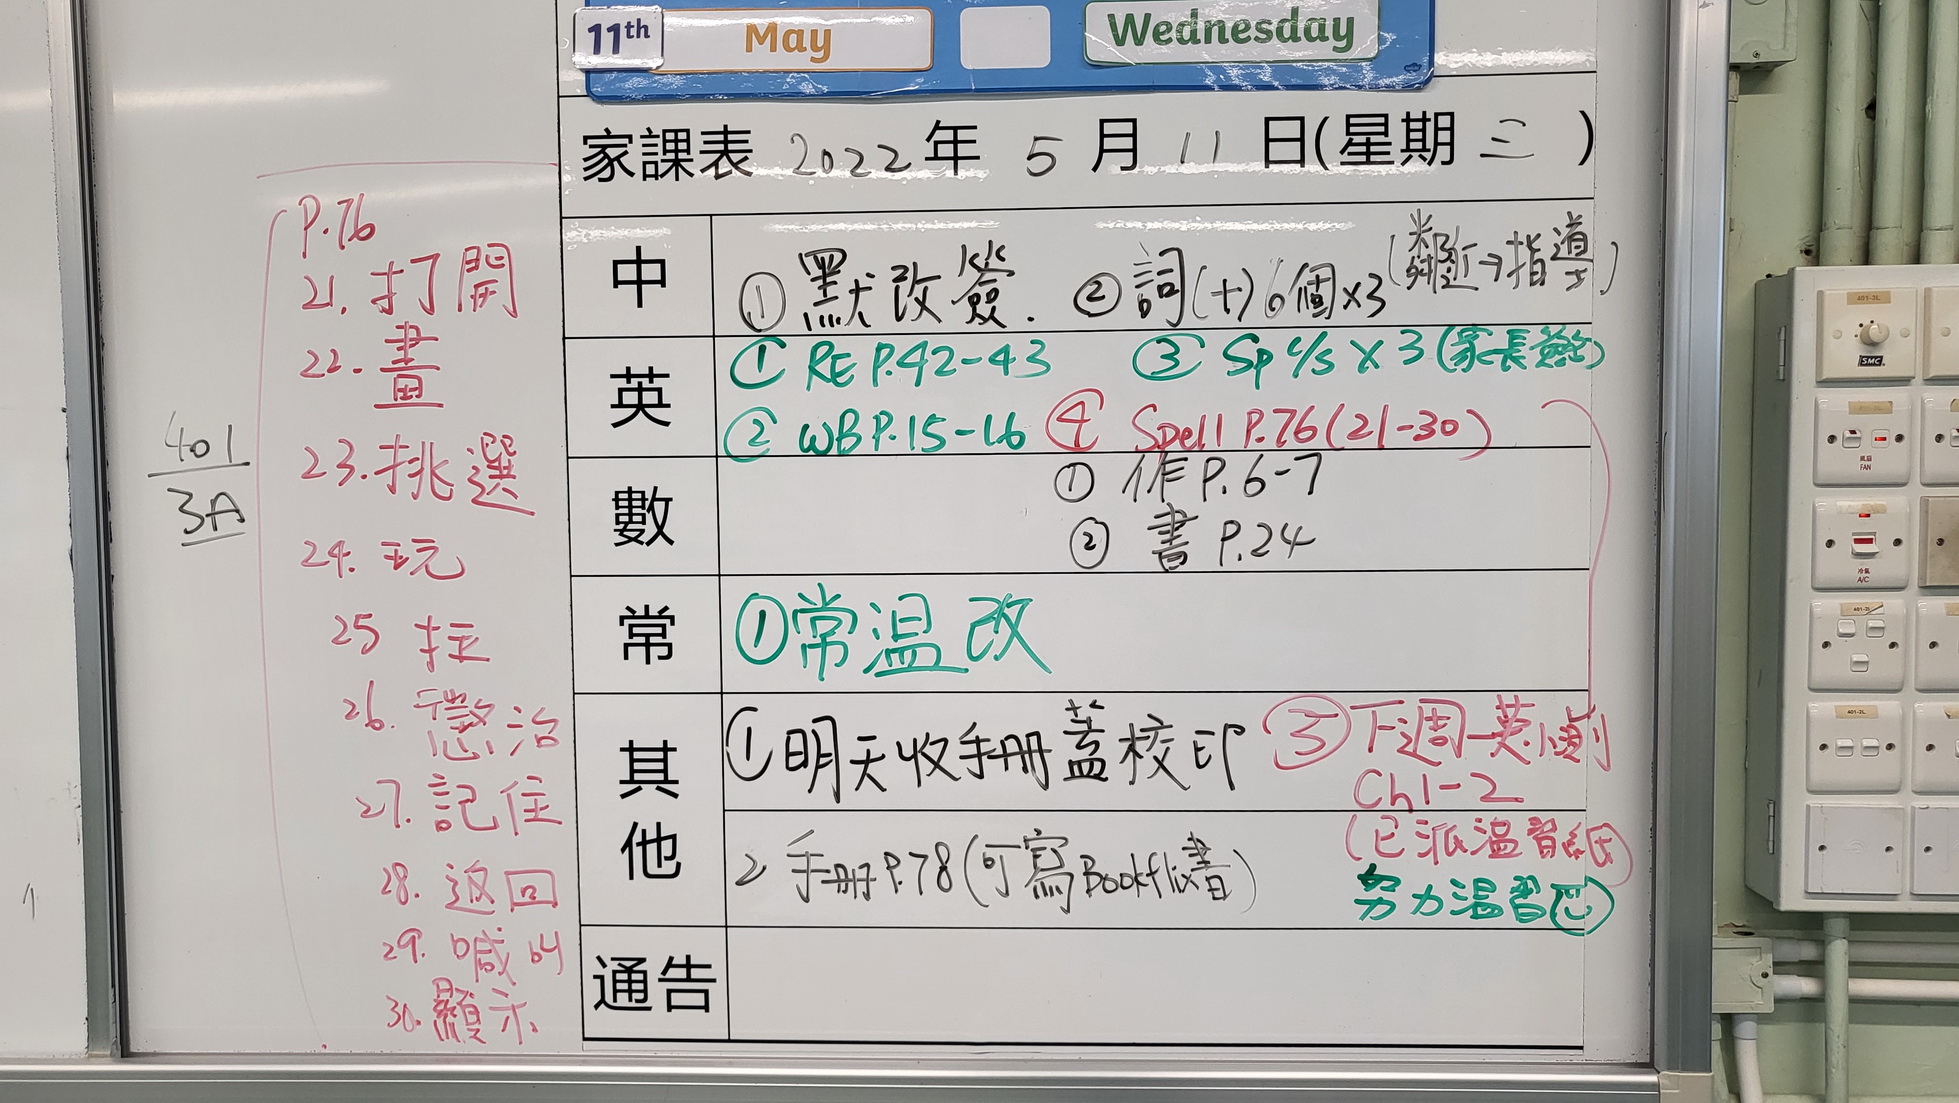 11th May Wednesday
家課表 2022 年 5 月 11 日(星期 三 )
中
① 默改簽. ② 詞(十)6個×3 (鄰近→指導)
英
① RE P.42-43 ③ Sp c/s × 3 (家長簽)
② WB P.15-16 ④ Spell P.76(21-30)
數
① 作 P.6-7
② 書 P.24
常
① 常温改
其他
① 明天收手冊蓋校印 ③ 下週一英小測
Ch1-2
2 手冊P.78(可寫Bookflix書) (已派温習紙)
努力温習
通告
P.76
21. 打開
22. 畫
23. 挑選
24. 玩
25 拉
26. 懲治
27. 記住
28. 返回
29. 喊叫
30. 顯示
401
3A
401-3L
SMC
風扇
FAN
冷氣
A/C
401-2L